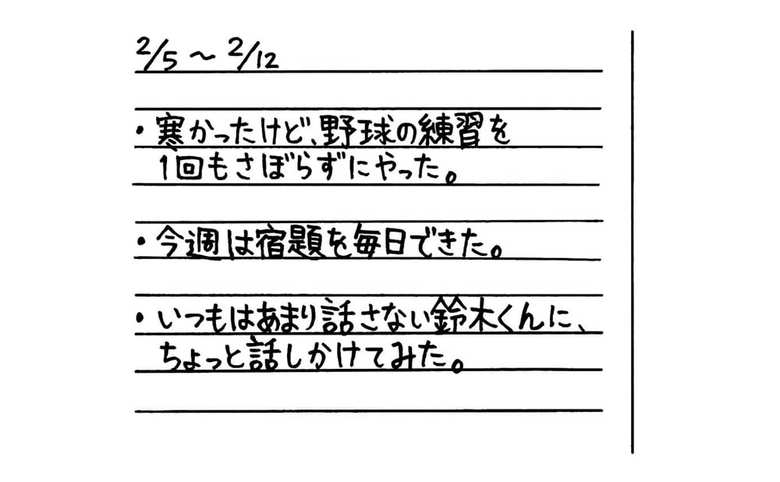 2/5 〜 2/12
・寒かったけど、野球の練習を
1回もさぼらずにやった。
・今週は宿題を毎日できた。
・いつもはあまり話さない鈴木くんに、
ちょっと話しかけてみた。